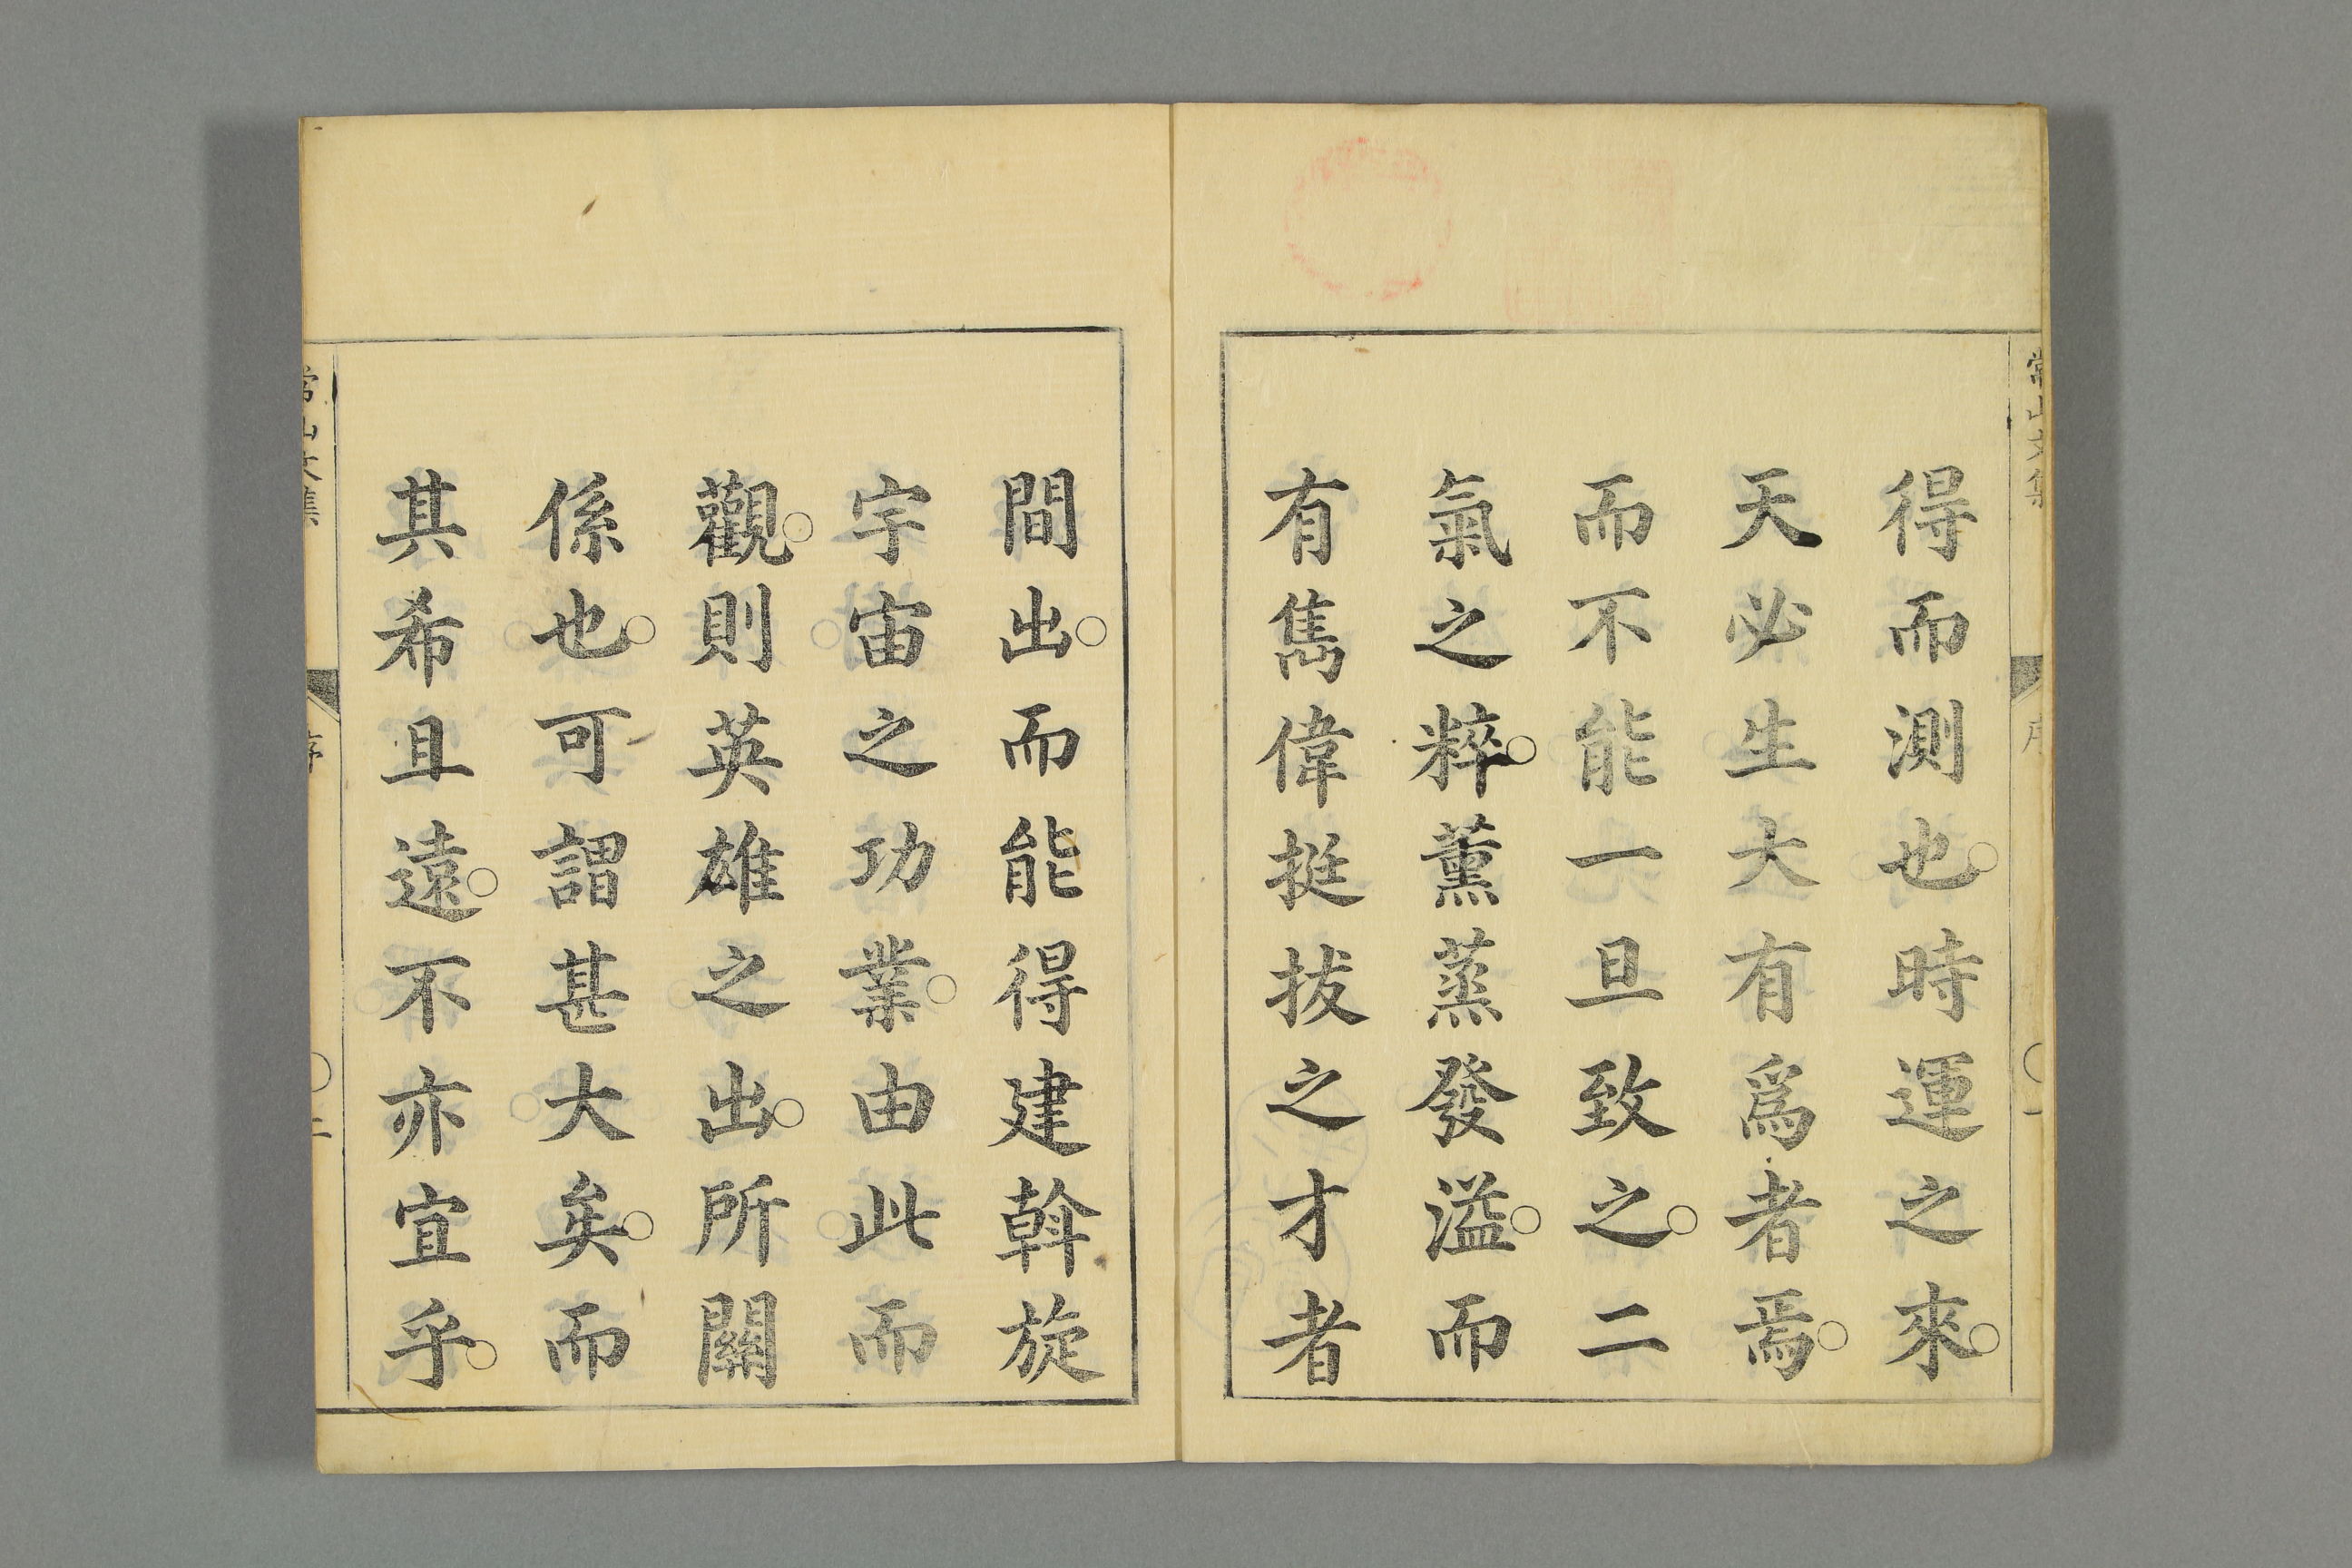 得而測也○時運之來○
天必生大有爲者焉○
而不能一旦致之○二
氣之粹○薰蒸發溢○而
有雋偉挺拔之才者
間出○而能得建斡旋
宇宙之功業○由此而
觀○則英雄之出○所關
係也○可謂甚大矣○而
其希且遠○不亦宜乎○
常山文集
序
二